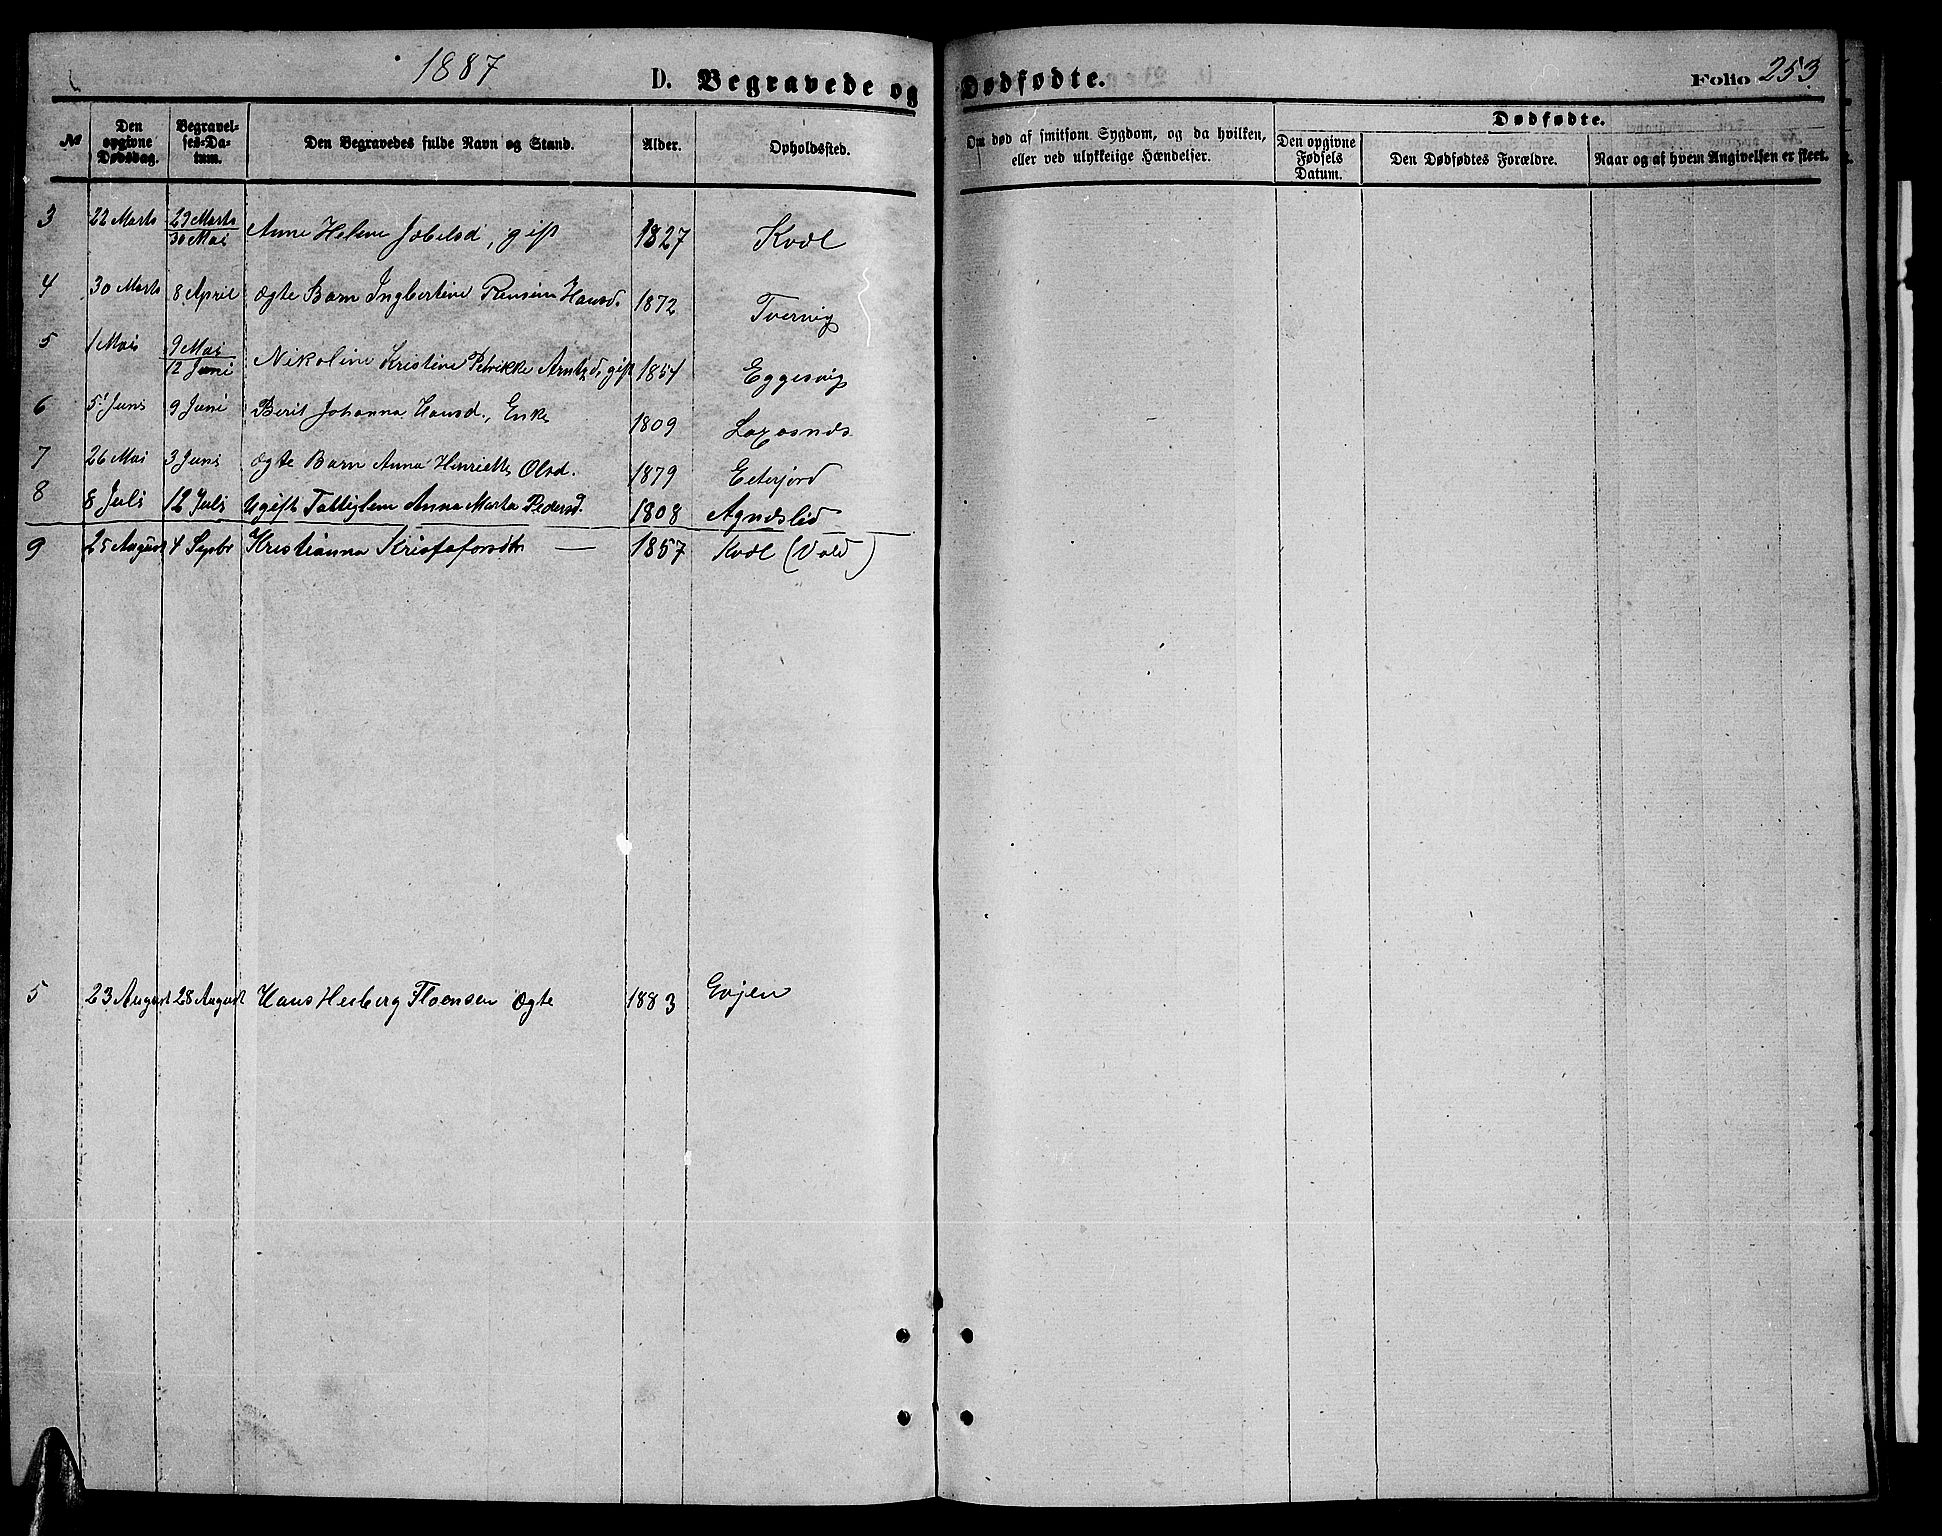 1887
D. Begravede og Dødfødte.
Folio 253
№ Den opgivne Dødsdag. Begravelses-Datum. Den Begravedes fulde Navn og Stand. Alder. Opholdssted. Om død af smitsom Sygdom, og da hvilken, eller ved ulykkelige Hændelser. Dødfødte. Den opgivne Fødsels Datum. Den Dødfødtes Forældre. Naar og af hvem Angivelsen er skeet.
3 22 Marts 29 Marts / 30 Mai Anne Helene Jobelsd, gift 1827 Kvæl
4 30 Marts 8 April Ægte Barn Ingbertine Hansd. 1872 Tvervig
5 1 Mai 9 Mai / 12 Juni Nikoline Kristine Petrikke Arntzd, gift 1854 Eggesvig
6 5 Juni 9 Juni Berit Johanna Hansd., Enke 1809 Laxosnæs
7 26 Mai 3 Juni Ægte Barn Anna Henriette Olsd. 1879 Eterjord
8 8 Juli 12 Juli Ugift Anna Marta Pedersd. 1808 Agnæslid
9 25 August 4 Sepbr Kristianna Kristofersdtr — 1857 Kvæl (Vold)
5 23 August 28 August Hans Floensen Ægte 1883 Evjen